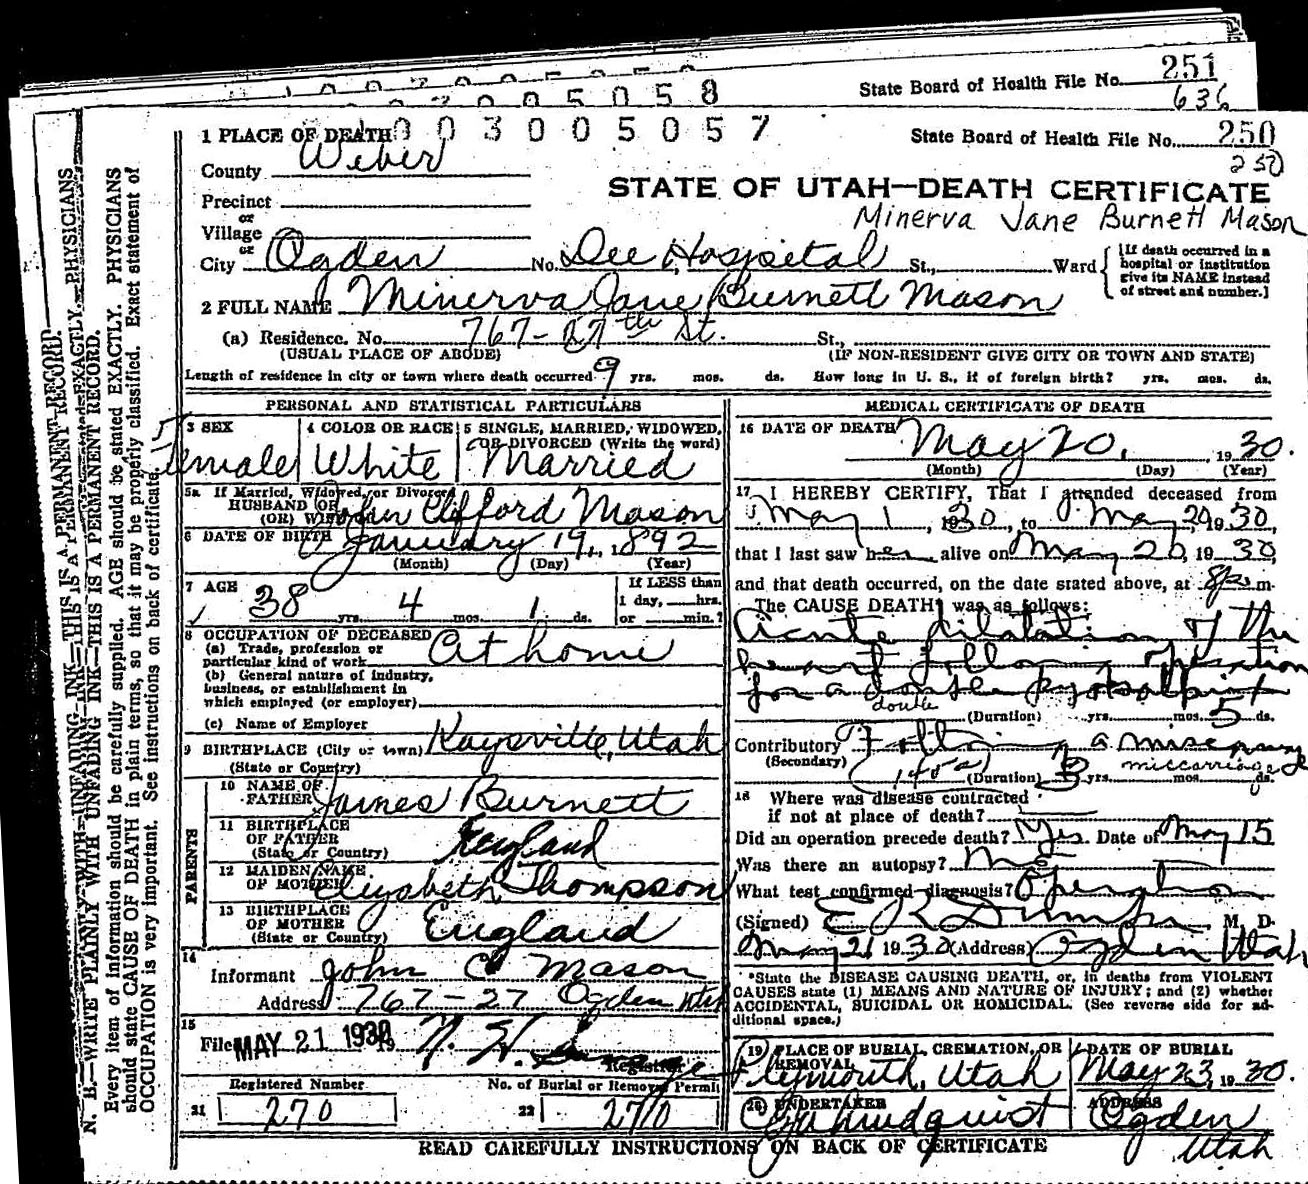 251
State Board of Health File No.
636
0 0 3 0 0 5 0 5 8
1 PLACE OF DEATH
0 0 3 0 0 5 0 5 7
State Board of Health File No. 250
250
County Weber
STATE OF UTAH—DEATH CERTIFICATE
Precinct
Minerva Jane Burnett Mason
or
Village
or
City Ogden No. Dee Hospital St., Ward
[If death occurred in a
hospital or institution
give its NAME instead
of street and number.]
2 FULL NAME Minerva Jane Burnett Mason
(a) Residence. No. 767-27th St. St.,
(USUAL PLACE OF ABODE) (IF NON-RESIDENT GIVE CITY OR TOWN AND STATE)
Length of residence in city or town where death occurred 9 yrs. mos. ds. How long in U. S., if of foreign birth? yrs. mos. ds.
PERSONAL AND STATISTICAL PARTICULARS
3 SEX
Female
4 COLOR OR RACE
White
5 SINGLE, MARRIED, WIDOWED,
OR DIVORCED (Write the word)
Married
5a If Married, Widowed, or Divorced
HUSBAND OF
(OR) WIFE OF John Clifford Mason
6 DATE OF BIRTH January 19, 1892
(Month) (Day) (Year)
7 AGE
38 yrs. 4 mos. 1 ds.
If LESS than
1 day, hrs.
or min.?
8 OCCUPATION OF DECEASED
(a) Trade, profession or
particular kind of work At home
(b) General nature of industry,
business, or establishment in
which employed (or employer)
(c) Name of Employer
9 BIRTHPLACE (City or town) Kaysville, Utah
(State or Country)
PARENTS
10 NAME OF
FATHER James Burnett
11 BIRTHPLACE
OF FATHER
(State or Country) England
12 MAIDEN NAME
OF MOTHER Elizabeth Thompson
13 BIRTHPLACE
OF MOTHER
(State or Country) England
14
Informant John C Mason
Address 767-27 Ogden Utah
15
Filed MAY 21 1930 19
Registrar
Registered Number
21 270
No. of Burial or Removal Permit
22 270
MEDICAL CERTIFICATE OF DEATH
16 DATE OF DEATH
May 20, 1930.
(Month) (Day) (Year)
17 I HEREBY CERTIFY, That I attended deceased from
May 1, 1930, to May 20 1930,
that I last saw her alive on May 20, 1930,
and that death occurred, on the date stated above, at 8 m.
The CAUSE DEATH was as follows:
Acute dilatation of the
heart following operation
for a double
double
(Duration) yrs. mos. 5 ds.
Contributory Following a
(Secondary)
miscarriage
(Duration) 3 yrs. mos. ds.
18 Where was disease contracted
if not at place of death?
Did an operation precede death? Yes. Date of May 15
Was there an autopsy?
What test confirmed diagnosis? Operation
(Signed) M. D.
May 21 1930 (Address) Ogden Utah
*State the DISEASE CAUSING DEATH, or, in deaths from VIOLENT
CAUSES state (1) MEANS AND NATURE OF INJURY; and (2) whether
ACCIDENTAL, SUICIDAL OR HOMICIDAL. (See reverse side for ad-
ditional space.)
19 PLACE OF BURIAL, CREMATION, OR
REMOVAL
Plymouth, Utah
DATE OF BURIAL
May 23, 1930.
20 UNDERTAKER
ADDRESS
Ogden
Utah
READ CAREFULLY INSTRUCTIONS ON BACK OF CERTIFICATE
N. B.—WRITE PLAINLY WITH UNFADING INK—THIS IS A PERMANENT RECORD.
Every item of information should be carefully supplied. AGE should be stated EXACTLY. PHYSICIANS
should state CAUSE OF DEATH in plain terms, so that it may be properly classified. Exact statement of
OCCUPATION is very important. See instructions on back of certificate.